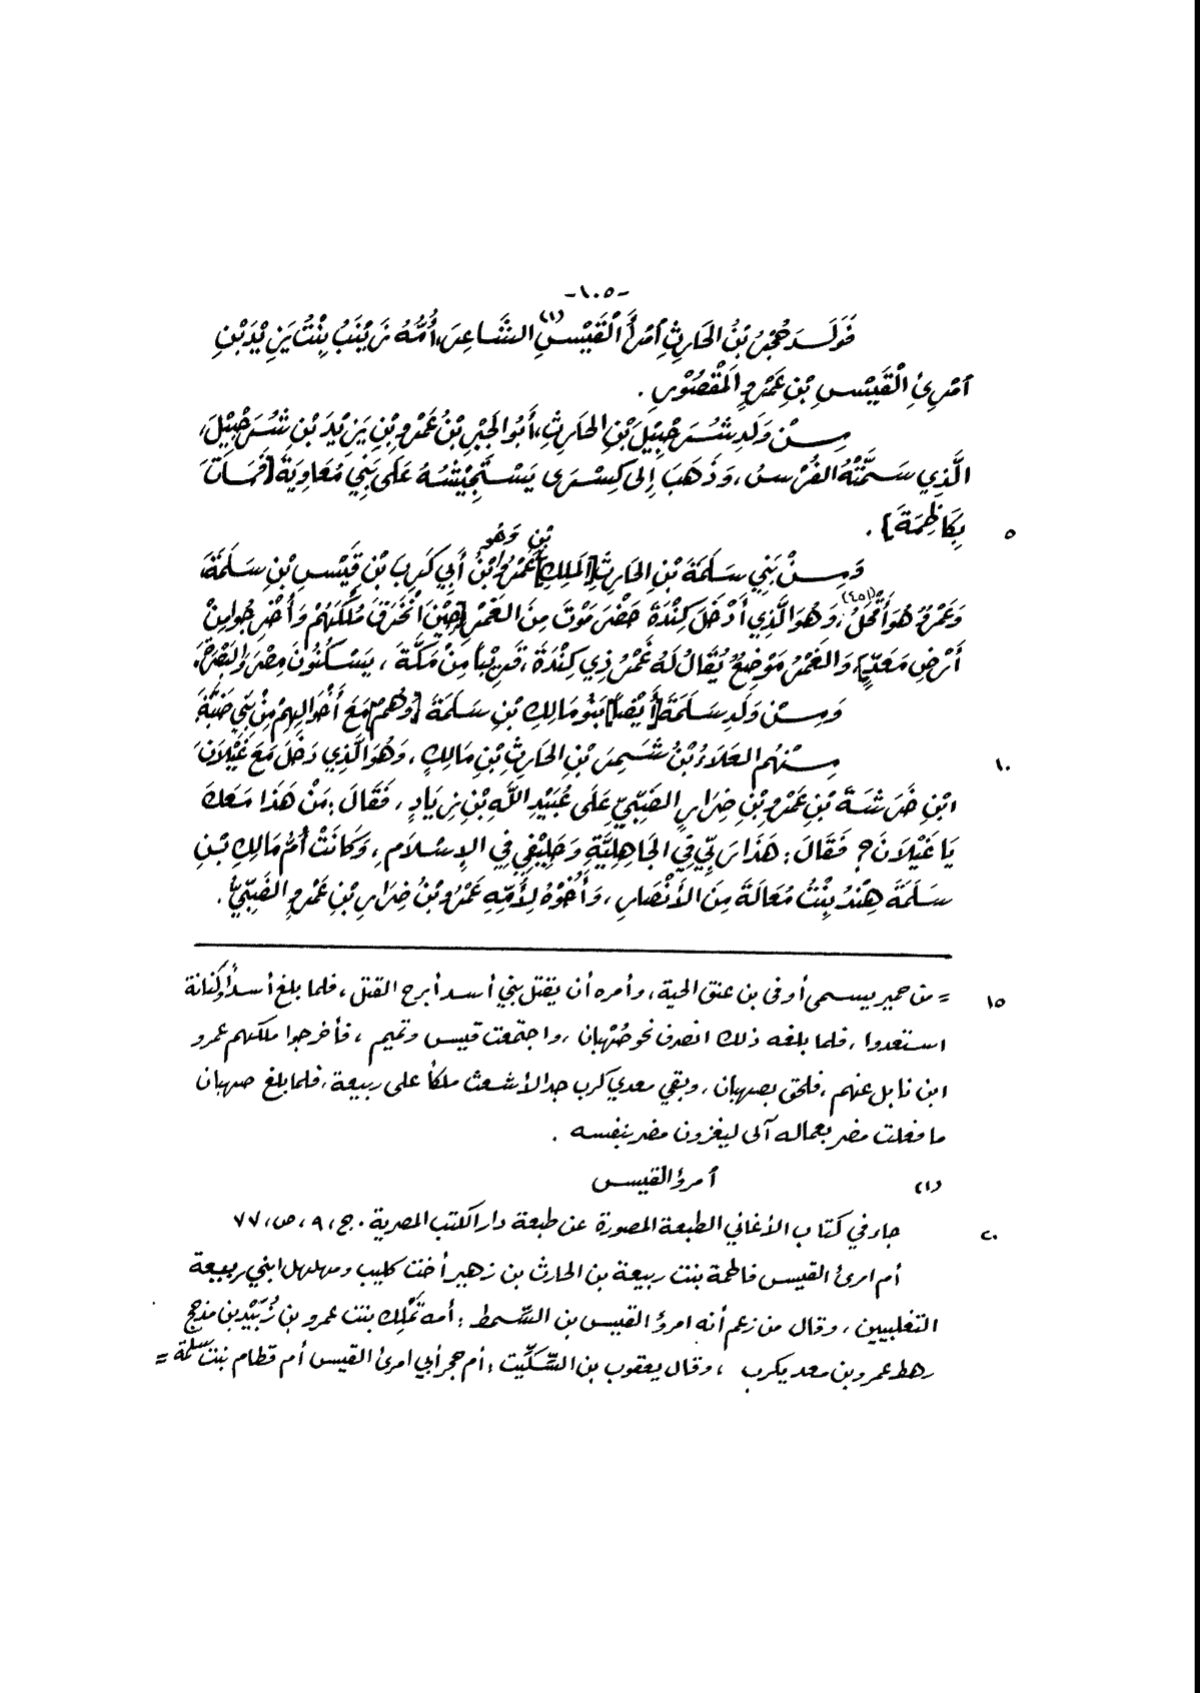 -١٠٥-
فَوَلَدَ حُجْرُ بْنُ الحَارِثِ امْرَأَ الْقَيْسِ (١) الشَّاعِرَ، أُمُّهُ زَيْنَبُ بِنْتُ يَزِيْدَ بْنِ
امْرِئِ الْقَيْسِ بْنِ عَمْرٍو الْمَقْصُوْرِ .
مِنْ وَلَدِ شُرَحْبِيْلَ بْنِ الحَارِثِ، أَبُو الجَبْرِ بْنُ عَمْرِو بْنِ يَزِيْدَ بْنِ شُرَحْبِيْلَ،
الَّذِي سَمَّتْهُ الفُرْسُ، وَذَهَبَ إِلى كِسْرَى يَسْتَجِيْشُهُ عَلَى بَنِي مُعَاوِيَةَ [فَمَاتَ
بِكَاظِمَةَ] . ٥
وَمِنْ بَنِي سَلَمَةَ بْنِ الحَارِثِ [المَلِكِ] بْنِ عَمْرٍو وَهُوَ ابْنُ أَبِي كَرِبَ بْنِ قَيْسِ بْنِ سَلَمَةَ،
وَعَمْرٌو هُوَ أَقْحَلُ، (٤٥١) وَهُوَ الَّذِي أَدْخَلَ كِنْدَةَ حَضْرَمَوْتَ مِنَ الغَمْرِ [حِيْنَ انْخَرَقَ مُلْكُهُمْ وَأُخْرِجُوا مِنْ
أَرْضِ مَعَدٍّ]، وَالغَمْرُ مَوْضِعٌ يُقَالُ لَهُ غَمْرُ ذِي كِنْدَةَ، قَرِيْباً مِنْ مَكَّةَ، يَسْكُنُونَ مِصْرَ وَالبَصْرَةَ.
وَمِنْ وَلَدِ سَلَمَةَ [أَيْضاً] بَنُو مَالِكِ بْنِ سَلَمَةَ [وَهُمْ مَعَ أَخْوَالِهِمْ مِنْ بَنِي ضَبَّةَ]
مِنْهُم العَلَاءُ بْنُ شَمِرَ بْنِ الحَارِثِ بْنِ مَالِكٍ، وَهُوَ الَّذِي دَخَلَ مَعَ غَيْلَانَ ١٠
ابْنِ خَرَشَةَ بْنِ عَمْرِو بْنِ ضِرَارٍ الضَّبِّيِّ عَلَى عُبَيْدِ اللَّهِ بْنِ زِيَادٍ، فَقَالَ: مَنْ هَذَا مَعَكَ
يَا غَيْلَانَ؟ فَقَالَ: هَذَا رَبِّي فِي الجَاهِلِيَّةِ وَحَلِيْفِي فِي الإِسْلَامِ، وَكَانَتْ أُمُّ مَالِكِ بْنِ
سَلَمَةَ هِنْدُ بِنْتُ مُعَالَةَ مِنَ الأَنْصَارِ، وَأَخُوْهُ لِأُمِّهِ عَمْرُو بْنُ ضِرَارِ بْنِ عَمْرٍو الضَّبِّيُّ.
= من حمير يسمى أوفى بن عنق الحية، وأمره أن يقتل بني أسد أبرح القتل، فلما بلغ أسداً وكنانة ١٥
استعدوا، فلما بلغه ذلك انصرف نحو صُهْبان، واجتمعت قيس وتميم، فأخرجوا ملكهم عمرو
ابن نابل عنهم، فلحق بصهبان، وبقي معدي كرب جد الأشعث ملكاً على ربيعة، فلما بلغ صهبان
ما فعلت مضر بعماله آلى ليغزون مضر بنفسه .
(١) أمرؤ القيس
جاء في كتاب الأغاني الطبعة المصورة عن طبعة دار الكتب المصرية. ج، ٩، ص، ٧٧ ٢٠
أم امرئ القيس فاطمة بنت ربيعة بن الحارث بن زهير أخت كليب ومهلهل ابني ربيعة
التغلبيين، وقال من زعم أنه امرؤ القيس بن السِّمط: أمه تَمْلِك بنت عمرو بن زُبَيْد بن مذحج
رهط عمرو بن معد يكرب ، وقال يعقوب بن السِّكِّيت: أم حجر أبي امرئ القيس أم قطام بنت سلمة =